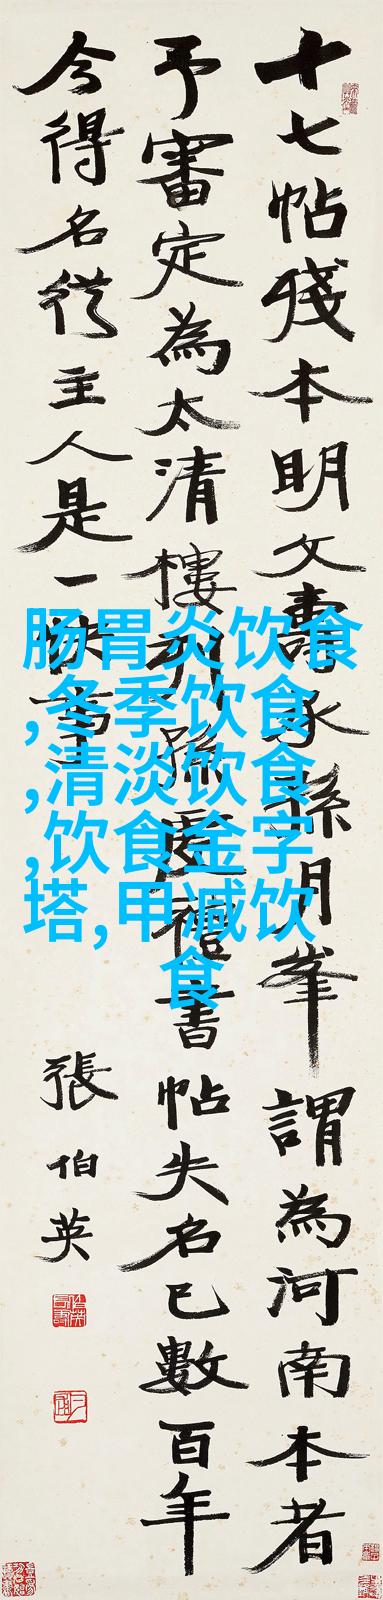 十七帖殘本明文壽承孫月峯謂為河南本者
予審定為太清樓刻孫虔禮書帖失名已數百年
今得名從主人是一快事
張伯英
肠胃炎饮食
,冬季饮食
,清淡饮食
,饮食金字
塔,甲减饮
食